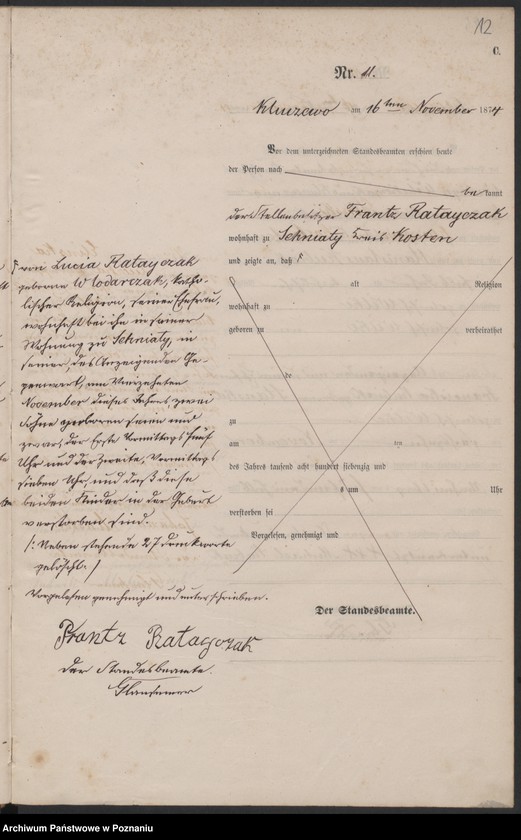 12
C.
Nr. 11.
Kluczewo am 16ten November 1874
Vor dem unterzeichneten Standesbeamten erschien heute
der Person nach
bekannt
der Stellenbesitzer Frantz Ratayczak
wohnhaft zu Sekniaty Kreis Kosten
und zeigte an, daß
von Lucia Ratayczak
geborene Wlodarczak, katho-
lischer Religion, seiner Ehefrau,
wohnhaft bei ihm in seiner
Wohnung zu Sekniaty, in
seiner, des Anzeigenden Ge-
genwart, am Vierzehnten
November dieses Jahres zwei
Söhne geboren seien und
zwar, der Erste Vormittags fünf
Uhr und der Zweite, Vormittags
sieben Uhr, und daß diese
beiden Kinder in der Geburt
verstorben sind.
/: Neben stehende 27 Druckworte
gelöscht. /
Vorgelesen genehmigt und unterschrieben.
Frantz Ratayczak
Der Standesbeamte.
alt Religion
wohnhaft zu
geboren zu verheirathet
de
zu
am
des Jahres tausend acht hundert siebenzig und
um Uhr
verstorben sei
Vorgelesen, genehmigt und
Der Standesbeamte.
Archiwum Państwowe w Poznaniu